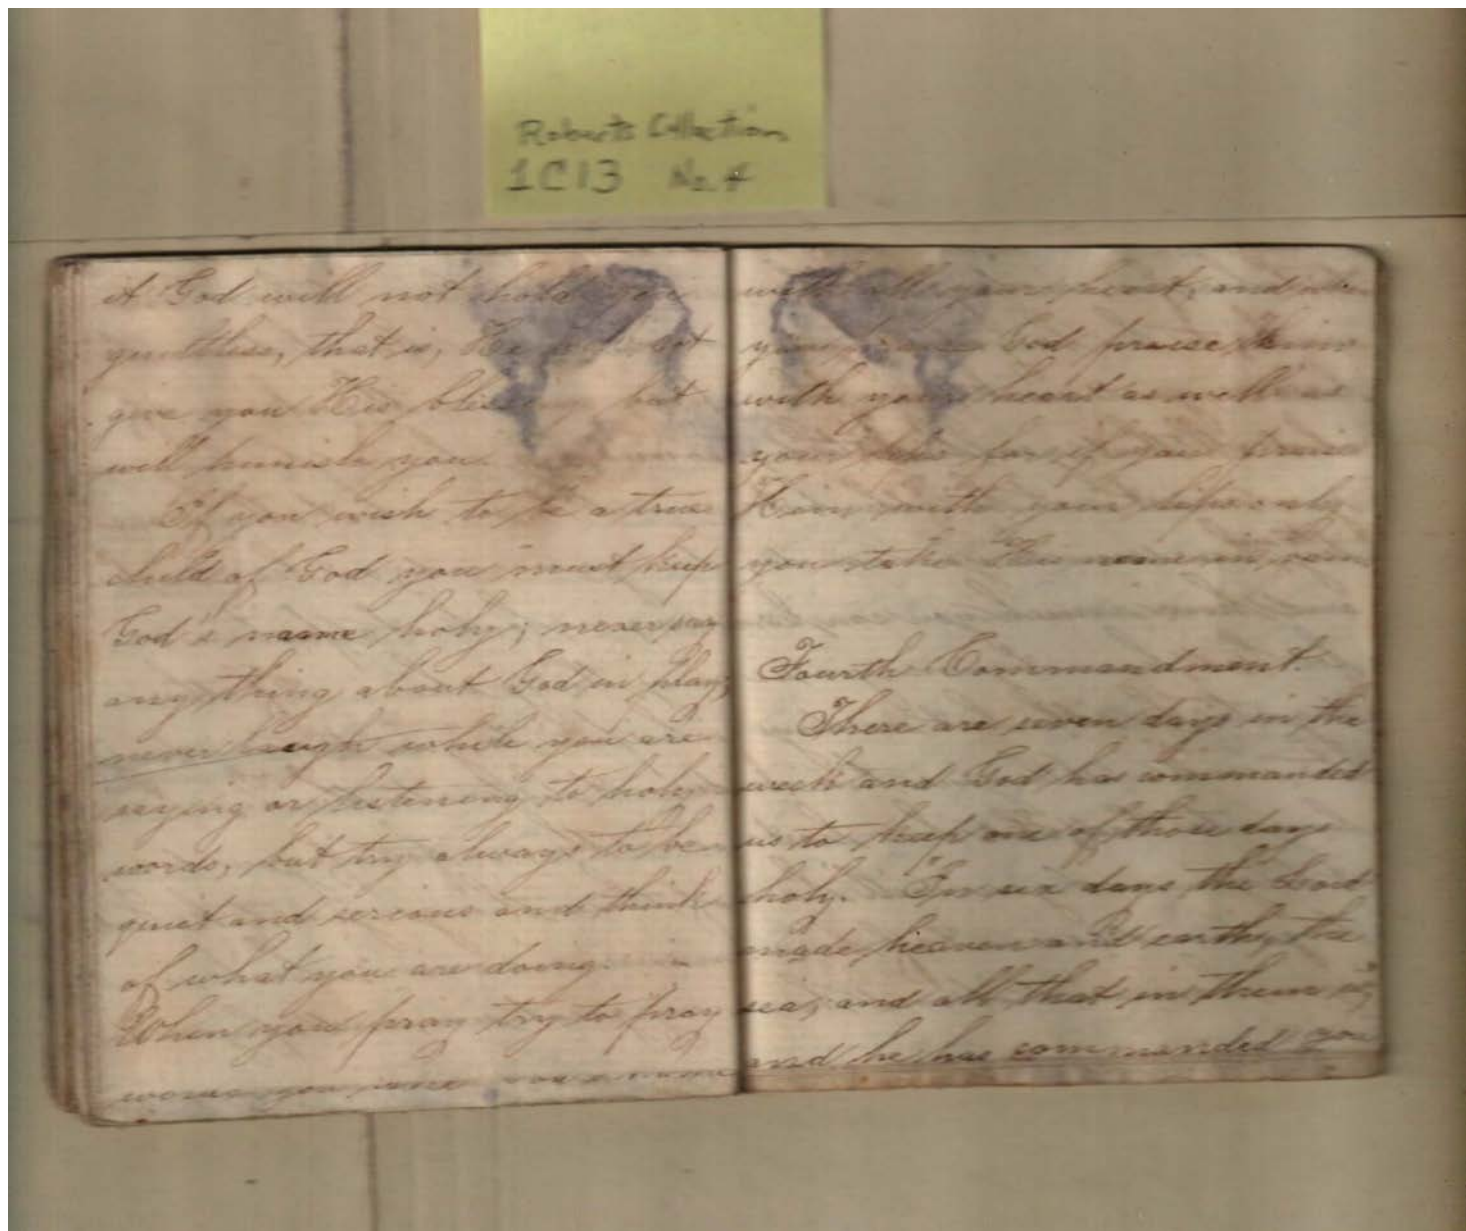 Roberts Collection
1C13 No. 4
it God will not hold you
guiltless, that is, He will not
give you His blessing but
will punish you.
If you wish to be a true
child of God you must keep
God's name holy; never say
any thing about God in play,
never laugh while you are
saying or listening to holy
words, but try always to be
quiet and serious and think
of what you are doing.
When you pray try to pray
with all your heart, and when
you God praise Him
with your heart as well as
your lips for if you praise
Him with your lips only
you take His name in vain
Fourth Commandment.
There are seven days in the
week and God has commanded
us to keep one of those days
holy. In six days the Lord
made heaven and earth, the
sea, and all that in them is,
and he has commanded you